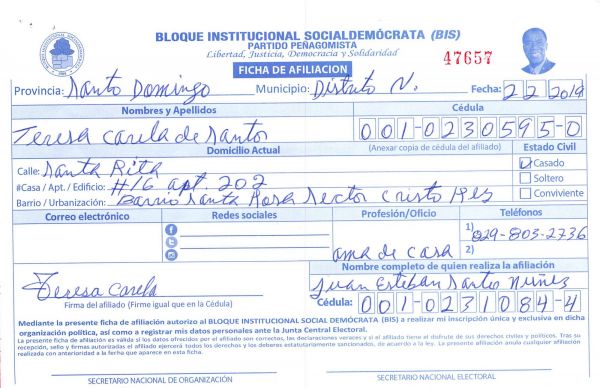 BLOQUE INSTITUCIONAL SOCIALDEMÓCRATA (BIS)
PARTIDO PEÑAGOMISTA
Libertad, Justicia, Democracia y Solidaridad
47657
FICHA DE AFILIACION
Provincia: Santo Domingo Municipio: Distrito N. Fecha: 2 2 2019
Nombres y Apellidos Cédula
Teresa Carela de Santos 001-0230595-0
Domicilio Actual (Anexar copia de cédula del afiliado) Estado Civil
Calle: Santa Rita Casado
#Casa / Apt. / Edificio: #16 apt. 202 Soltero
Barrio / Urbanización: Barrio Santa Rosa Sector Cristo Rey Conviviente
Correo electrónico Redes sociales Profesión/Oficio Teléfonos
1) 829-803-2736
ama de casa 2)
Nombre completo de quien realiza la afiliación
Teresa Carela Juan Esteban Santos Núñez
Firma del afiliado (Firme igual que en la Cédula) Cédula: 001-0231084-4
Mediante la presente ficha de afiliación autorizo al BLOQUE INSTITUCIONAL SOCIALDEMÓCRATA (BIS) a realizar mi inscripción única y exclusiva en dicha
organización política, así como a registrar mis datos personales ante la Junta Central Electoral.
La presente ficha de afiliación es válida si los datos ofrecidos por el afiliado son correctos, las declaraciones veraces y si el afiliado tiene el disfrute de sus derechos civiles y políticos. Tras su
recepción, sello y firmas autorizadas el afiliado ejercerá todos los derechos y los deberes estatutariamente sancionados, de acuerdo a la ley. La presente afiliación anula cualquier afiliación
realizada con anterioridad a la fecha que aparece en esta ficha.
SECRETARIO NACIONAL DE ORGANIZACIÓN SECRETARIO NACIONAL ELECTORAL